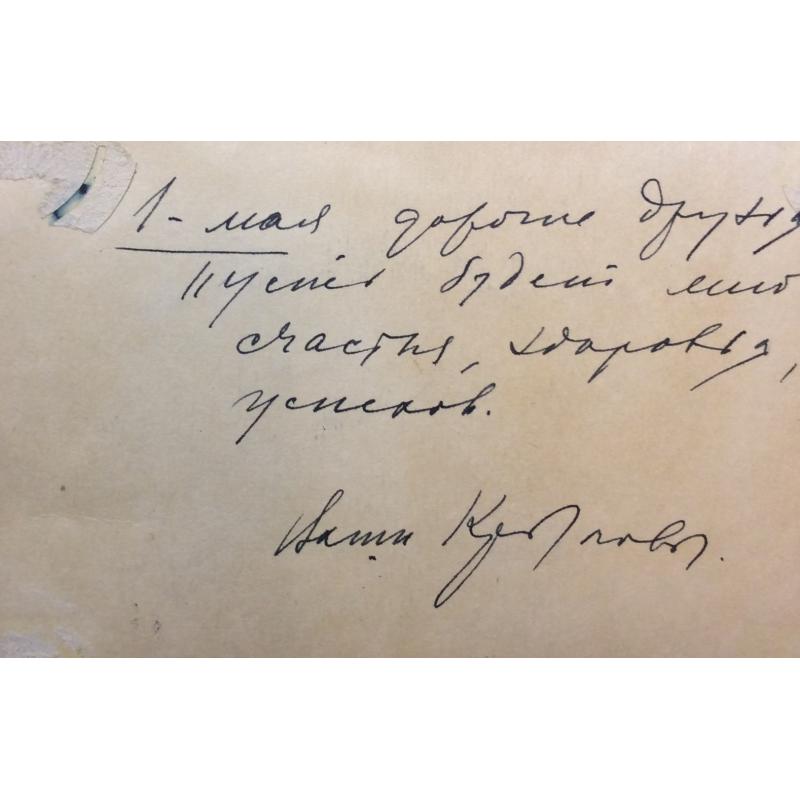 1- мая дорогие друзья
Пусть будет мно
счастья, здоровья,
успехов.
Ваши